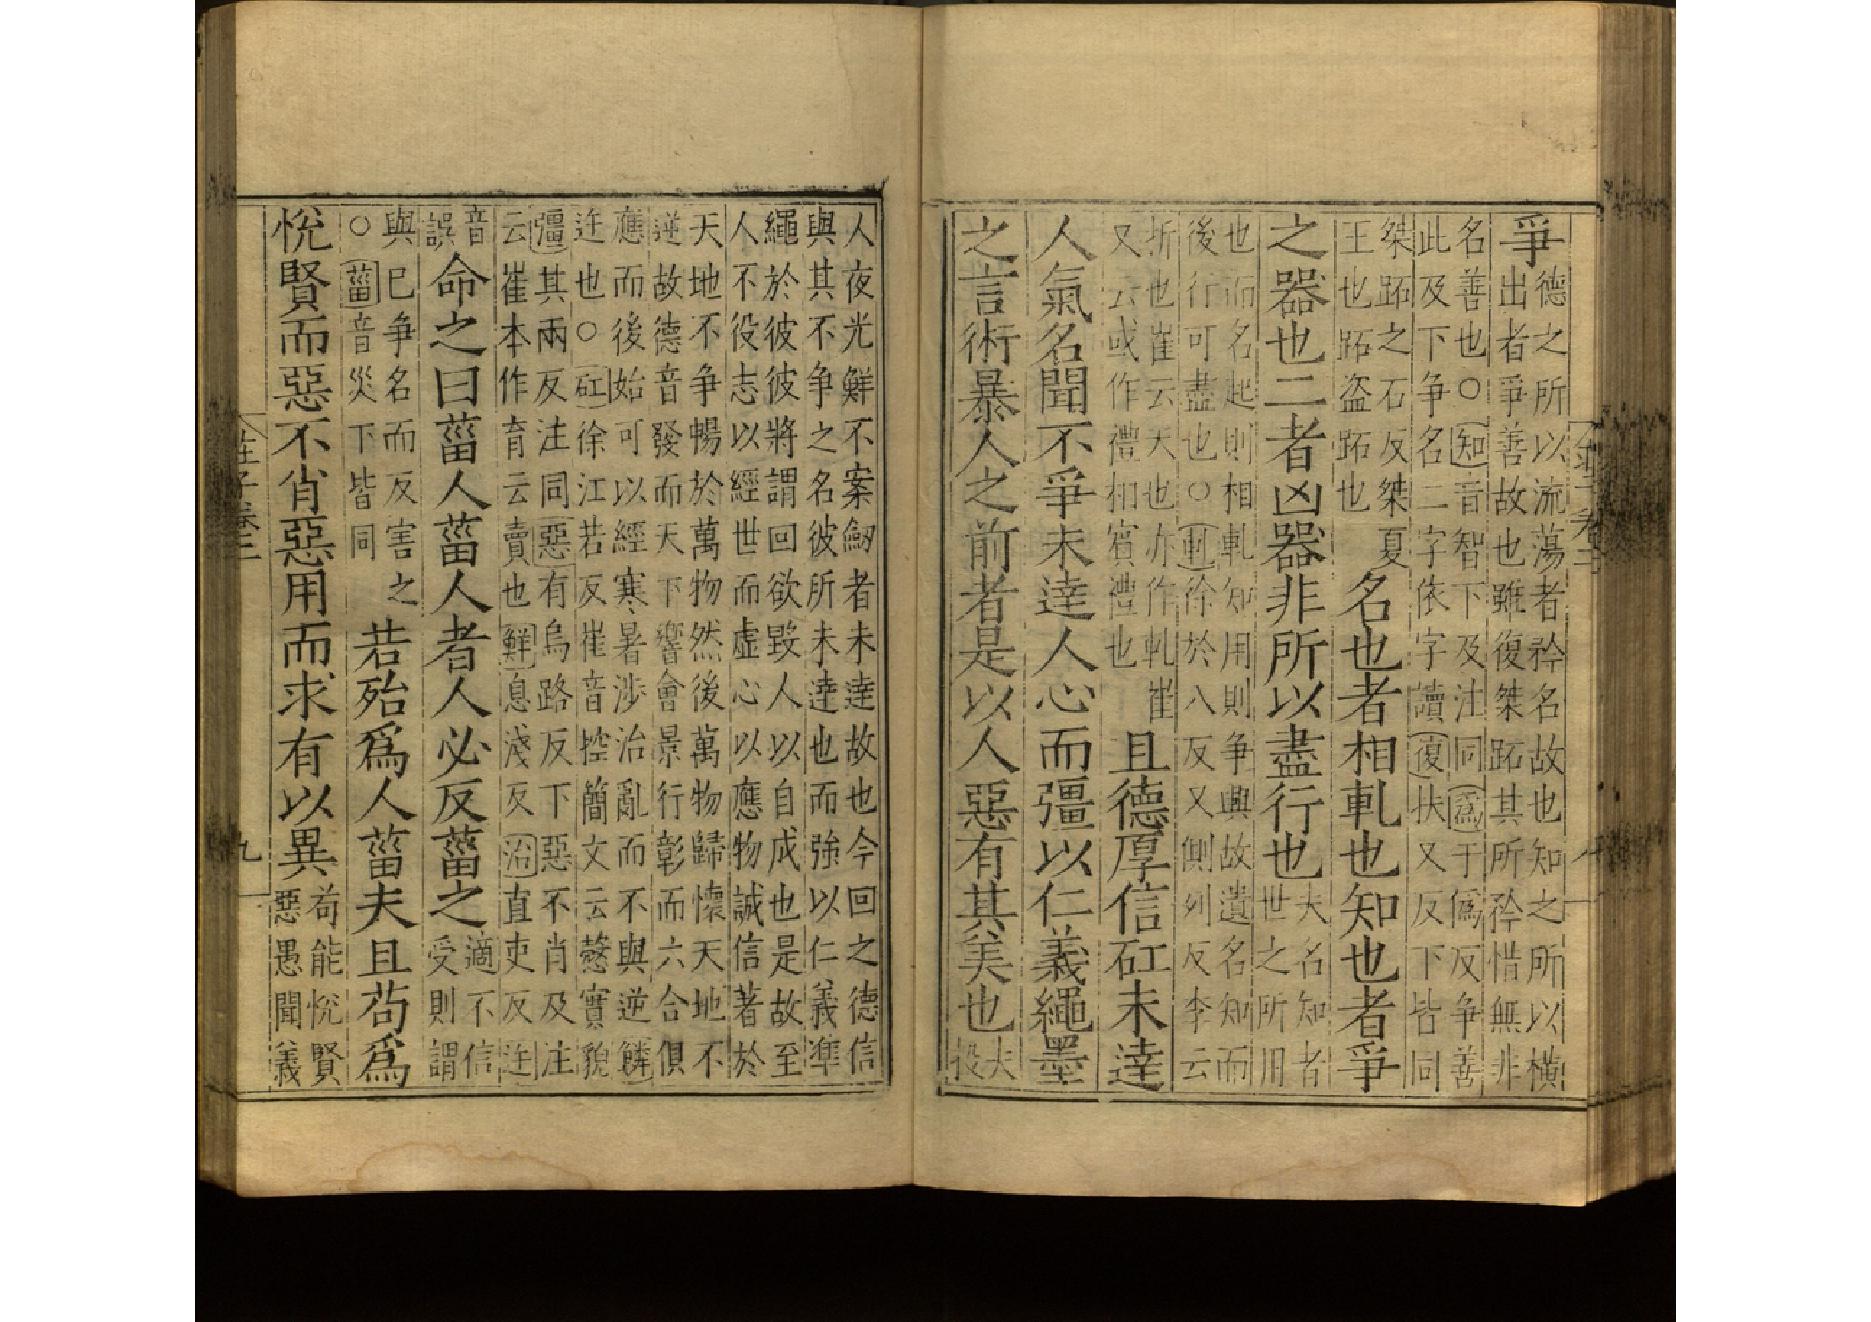 爭德之所以流蕩者矜名故也知之所以橫
出者爭善故也雖復桀跖其所矜惜無非
名善也○知音智下及注同爲于僞反争善
此及下争名二字依字讀復扶又反下皆同
桀跖之石反桀夏
王也跖盗跖也
名也者相軋也知也者爭
之器也二者凶器非所以盡行也
夫名知者
世之所用
也而名起則相軋知用則争興故遺名知而
後行可盡也○軋徐於八反又側列反李云
折也崔云夭也亦作軋崔
又云或作禮相賓禮也
且德厚信矼未達
人氣名聞不爭未達人心而彊以仁義繩墨
之言術暴人之前者是以人惡有其美也
夫
投
人夜光鮮不案劒者未達故也今回之德信
與其不争之名彼所未達也而強以仁義準
繩於彼彼將謂回欲毀人以自成也是故至
人不役志以經世而虛心以應物誠信著於
天地不争暢於萬物然後萬物歸懷天地不
逆故德音發而天下響會景行彰而六合俱
應而後始可以經寒暑涉治亂而不與逆鱗
迕也○矼徐江若反崔音控簡文云愨實貌
彊其兩反注同惡有烏路反下惡不肖及注
云崔本作育云賣也鮮息淺反沿直吏反迕
音
誤
命之曰菑人菑人者人必反菑之
適不信
受則謂
與已争名而反害之
○菑音災下皆同
若殆爲人菑夫且苟爲
悅賢而惡不肖惡用而求有以異
苟能悅賢
惡愚聞義
莊子卷二
九